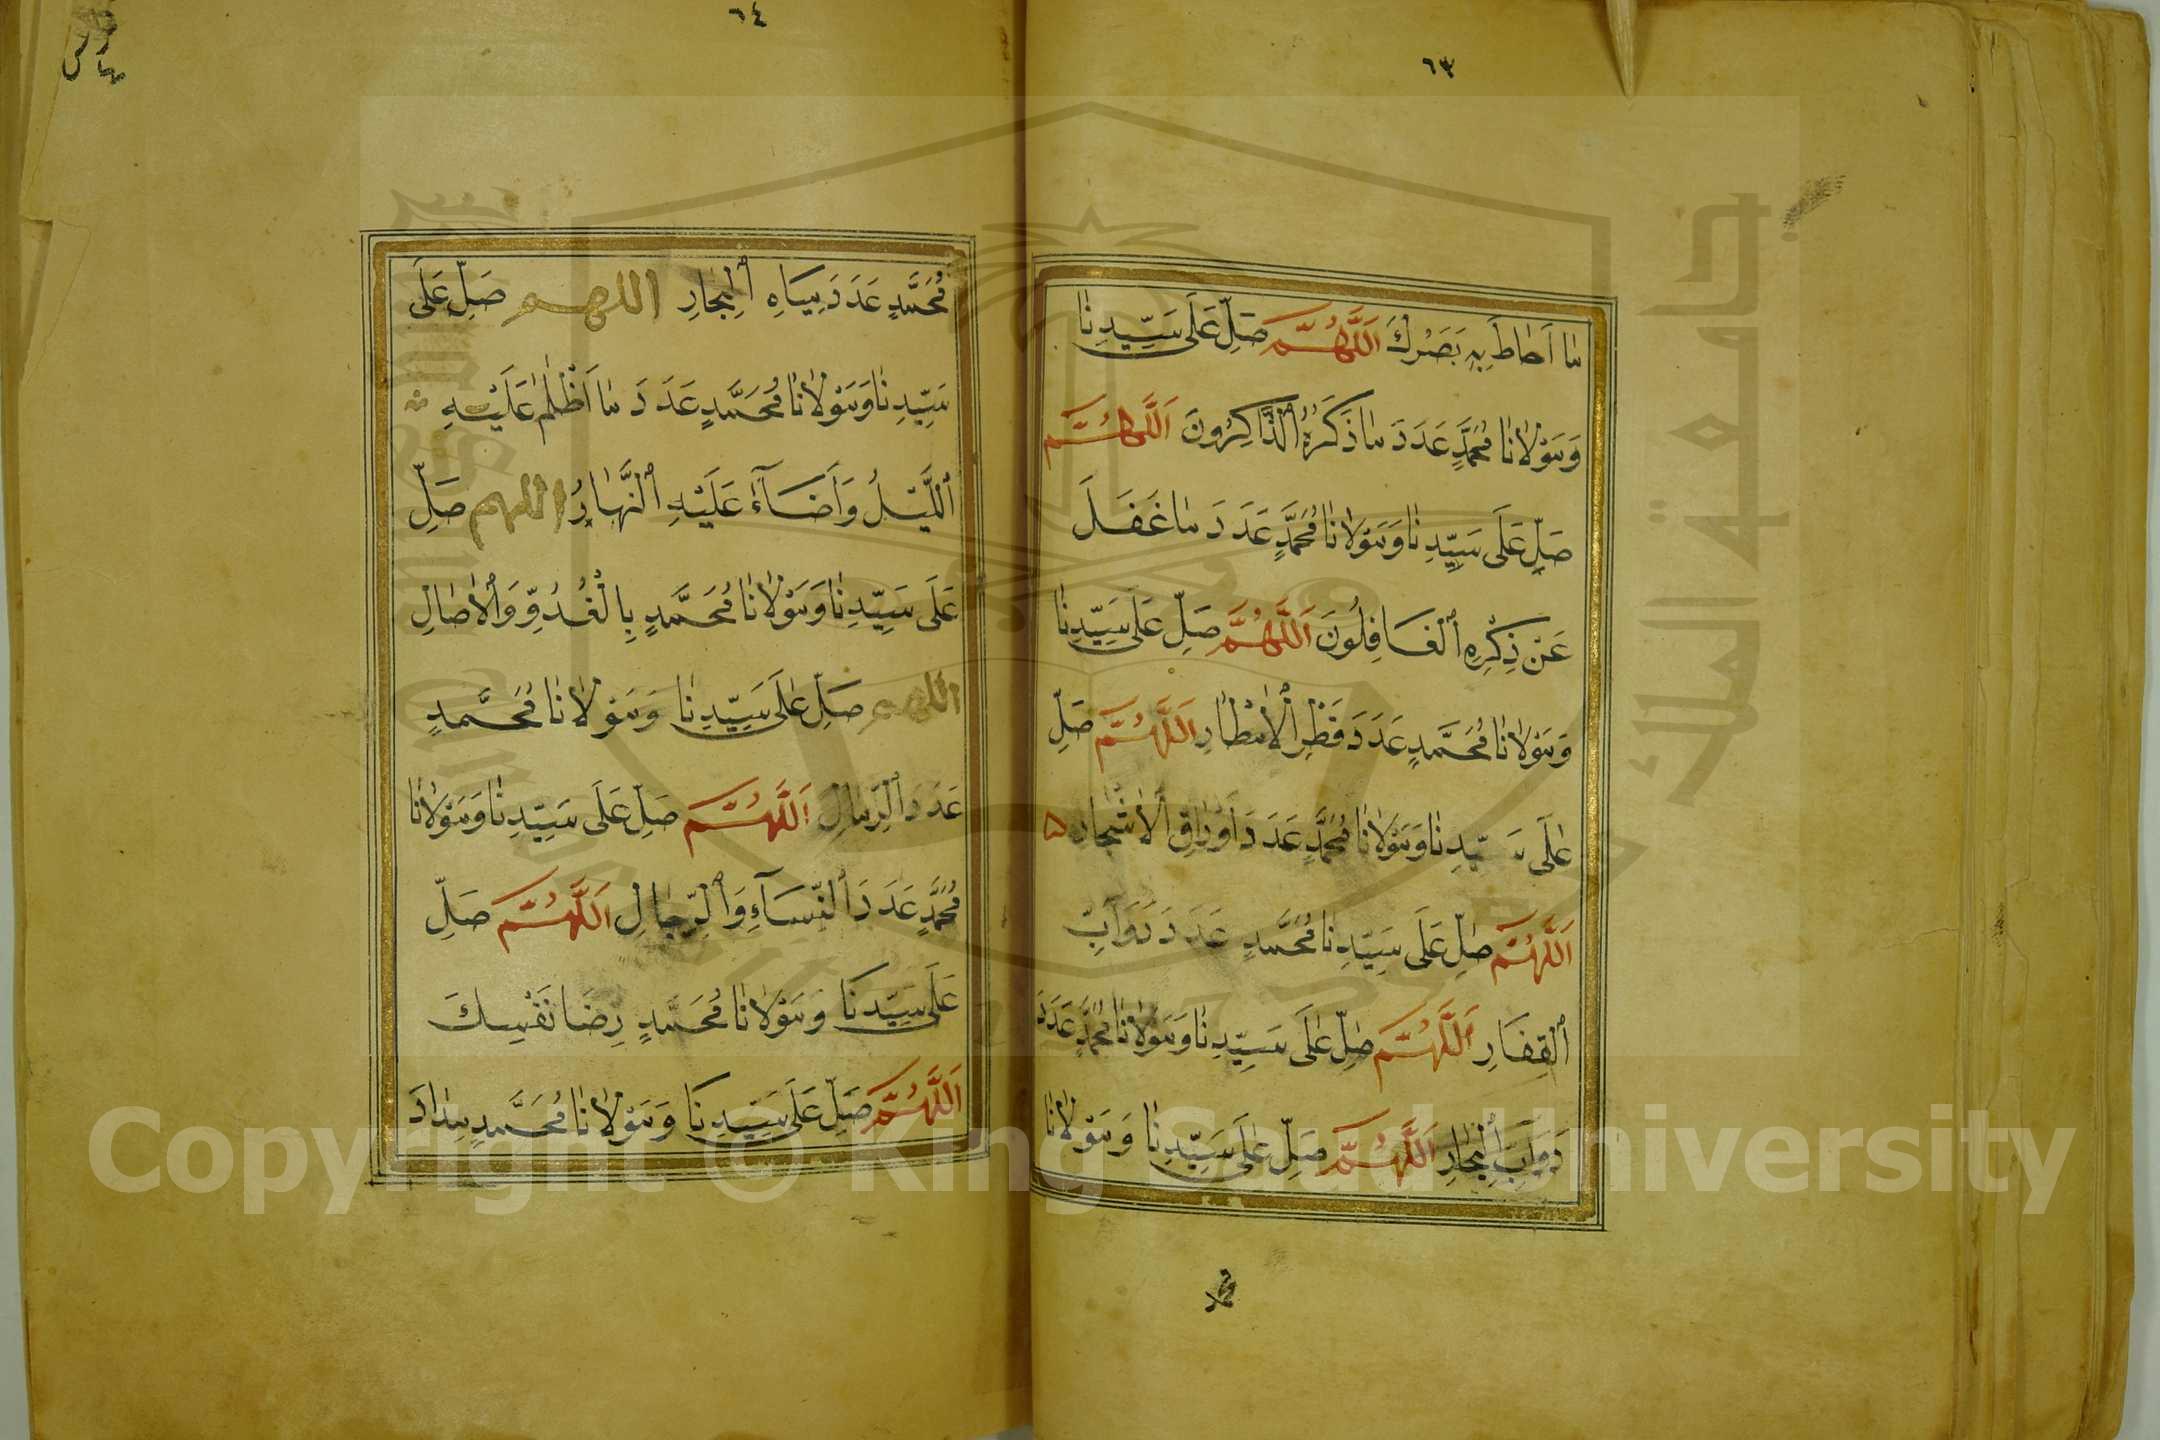 ٦٣
مَا اَحَاطَ بِهِ بَصَرُكَ اَللّٰهُمَّ صَلِّ عَلَى سَيِّدِنَا
وَمَوْلَانَا مُحَمَّدٍ عَدَدَ مَا ذَكَرَهُ الذَّاكِرُونَ اَللّٰهُمَّ
صَلِّ عَلَى سَيِّدِنَا وَمَوْلَانَا مُحَمَّدٍ عَدَدَ مَا غَفَلَ
عَنْ ذِكْرِهِ الْغَافِلُونَ اَللّٰهُمَّ صَلِّ عَلَى سَيِّدِنَا
وَمَوْلَانَا مُحَمَّدٍ عَدَدَ قَطْرِ الْاَمْطَارِ اَللّٰهُمَّ صَلِّ
عَلَى سَيِّدِنَا وَمَوْلَانَا مُحَمَّدٍ عَدَدَ اَوْرَاقِ الْاَشْجَارِ
اَللّٰهُمَّ صَلِّ عَلَى سَيِّدِنَا مُحَمَّدٍ عَدَدَ دَوَآبِّ
الْقِفَارِ اَللّٰهُمَّ صَلِّ عَلَى سَيِّدِنَا وَمَوْلَانَا مُحَمَّدٍ عَدَدَ
دَوَآبِّ الْبِحَارِ اَللّٰهُمَّ صَلِّ عَلَى سَيِّدِنَا وَمَوْلَانَا
٦٤
مُحَمَّدٍ عَدَدَ مِيَاهِ الْبِحَارِ اللهم صَلِّ عَلَى
سَيِّدِنَا وَمَوْلَانَا مُحَمَّدٍ عَدَدَ مَا اَظْلَمَ عَلَيْهِ
الَّيْلُ وَاَضَآءَ عَلَيْهِ النَّهَارُ اللهم صَلِّ
عَلَى سَيِّدِنَا وَمَوْلَانَا مُحَمَّدٍ بِالْغُدُوِّ وَالْاٰصَالِ
اللهم صَلِّ عَلَى سَيِّدِنَا وَمَوْلَانَا مُحَمَّدٍ
عَدَدَ الرِّمَالِ اَللّٰهُمَّ صَلِّ عَلَى سَيِّدِنَا وَمَوْلَانَا
مُحَمَّدٍ عَدَدَ النِّسَآءِ وَالرِّجَالِ اَللّٰهُمَّ صَلِّ
عَلَى سَيِّدِنَا وَمَوْلَانَا مُحَمَّدٍ رِضَا نَفْسِكَ
اَللّٰهُمَّ صَلِّ عَلَى سَيِّدِنَا وَمَوْلَانَا مُحَمَّدٍ مِدَادَ
جامعة الملك سعود
Copyright © King Saud University